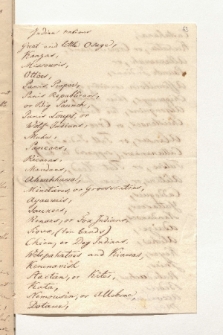 Indian nations
Great and little Osages,
Kanzas,
Missouris,
Ottos,
Panis Proper,
Panis Republicain,
or Big Paunch,
Panis Loups, or
Wolf Indians
Mahas,
Poncaras,
Ricaras
Mandans,
Ahwahhaway,
Minetares, or Grosventres,
Ayauwais,
Saucars,
Renars, or Fox Indians,
Sioux, (ten bands)
Chien, or Dog Indians.
Wetepahatoes and Kiawas,
Kanenavish
Staetan, or Kites,
Kata,
Nemousin, or Allebus,
Dotame,